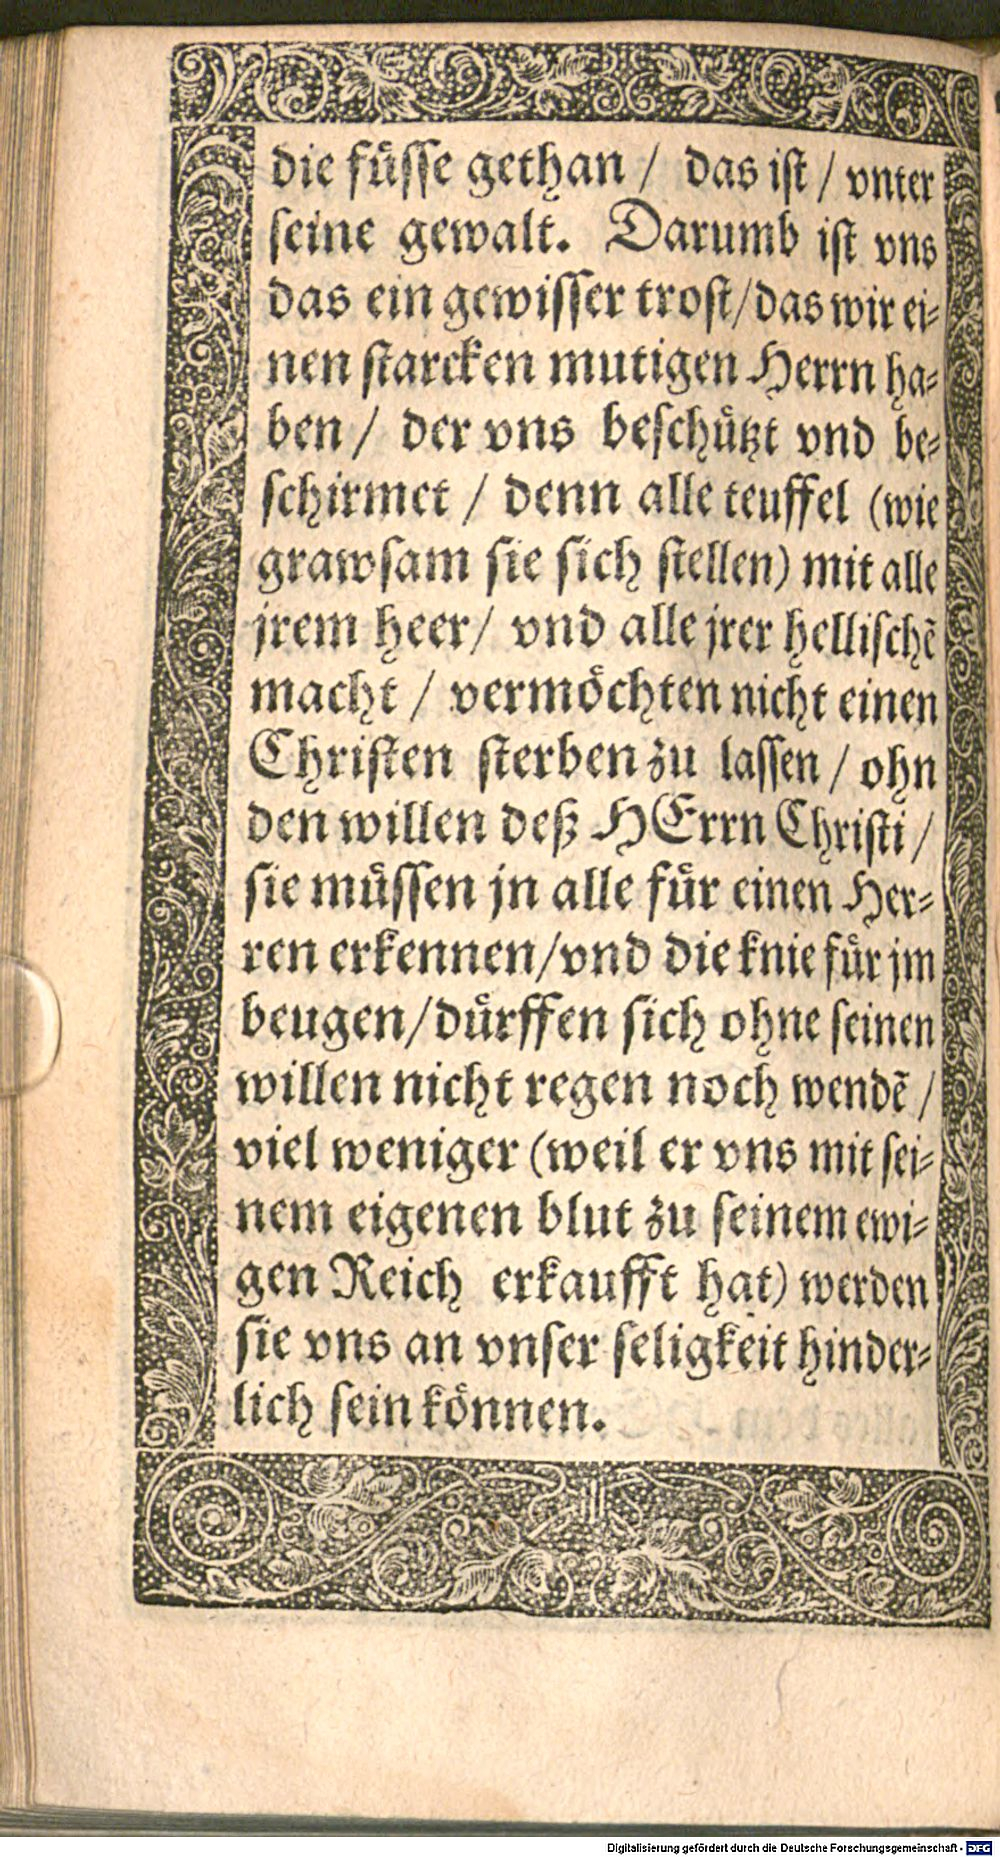 die fuͤsse gethan / das ist / vnter
seine gewalt. Darumb ist vns
das ein gewisser trost/das wir ei⸗
nen starcken mutigen Herrn ha⸗
ben / der vns beschuͤtzt vnd be⸗
schirmet / denn alle teuffel (wie
grawsam sie sich stellen) mit alle
jrem heer/ vnd alle jrer hellischē
macht / vermoͤchten nicht einen
Christen sterben zu lassen / ohn
den willen deß HErrn Christi /
sie muͤssen jn alle fuͤr einen Her⸗
ren erkennen/vnd die knie fuͤr jm
beugen/duͤrffen sich ohne seinen
willen nicht regen noch wendē /
viel weniger (weil er vns mit sei⸗
nem eigenen blut zu seinem ewi⸗
gen Reich erkaufft hat) werden
sie vns an vnser seligkeit hinder⸗
lich sein koͤnnen.
Digitalisierung gefördert durch die Deutsche Forschungsgemeinschaft - DFG